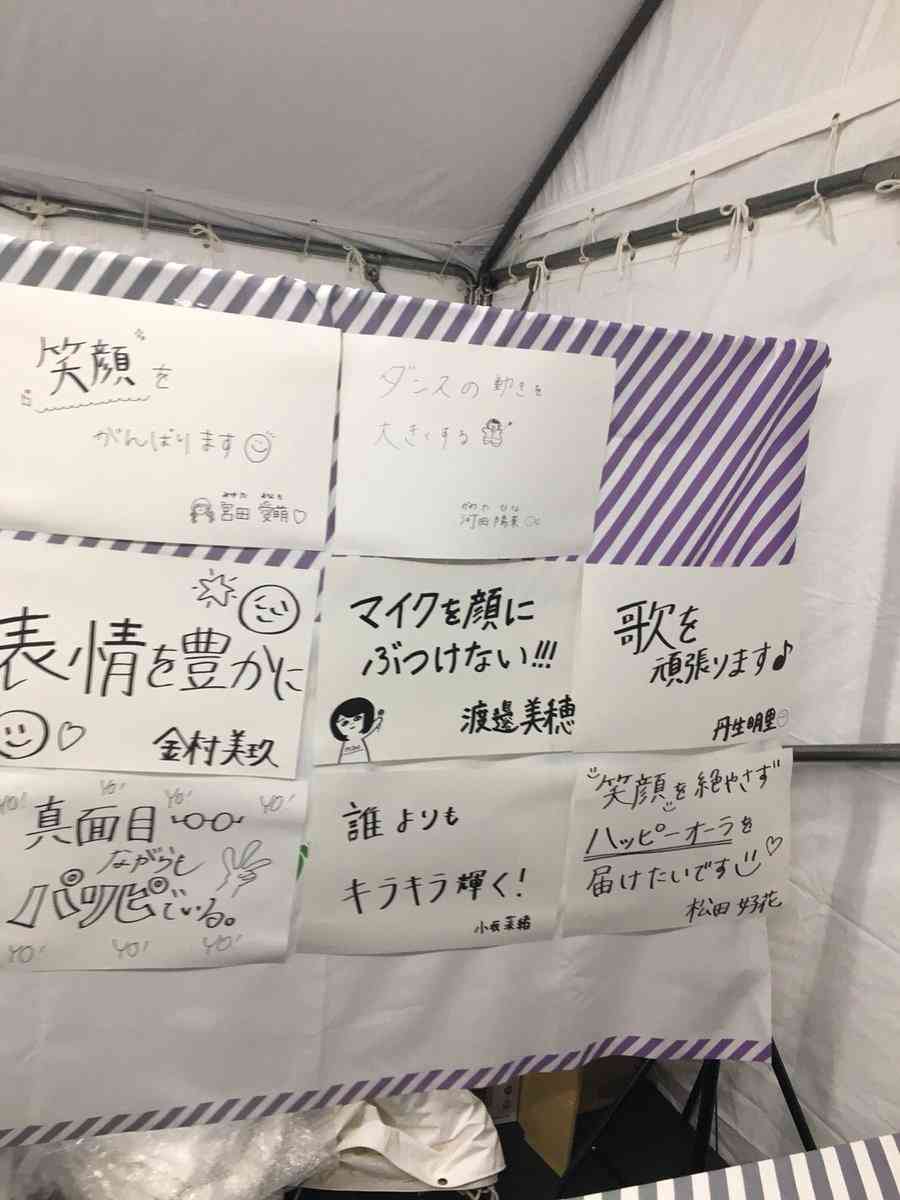 笑顔を
がんばります
みやた まなも
宮田 愛萌
ダンスの動きを
大きくする
かわた ひな
河田陽菜
表情を豊かに
金村美玖
マイクを顔に
ぶつけない!!!
渡邉美穂
歌を
頑張ります♪
丹生明里
YO! YO! YO! YO!
真面目
ながらも
パリピでいる。
YO! YO! YO!
誰よりも
キラキラ輝く!
小坂菜緒
笑顔を絶やさず
ハッピーオーラを
届けたいです
松田好花